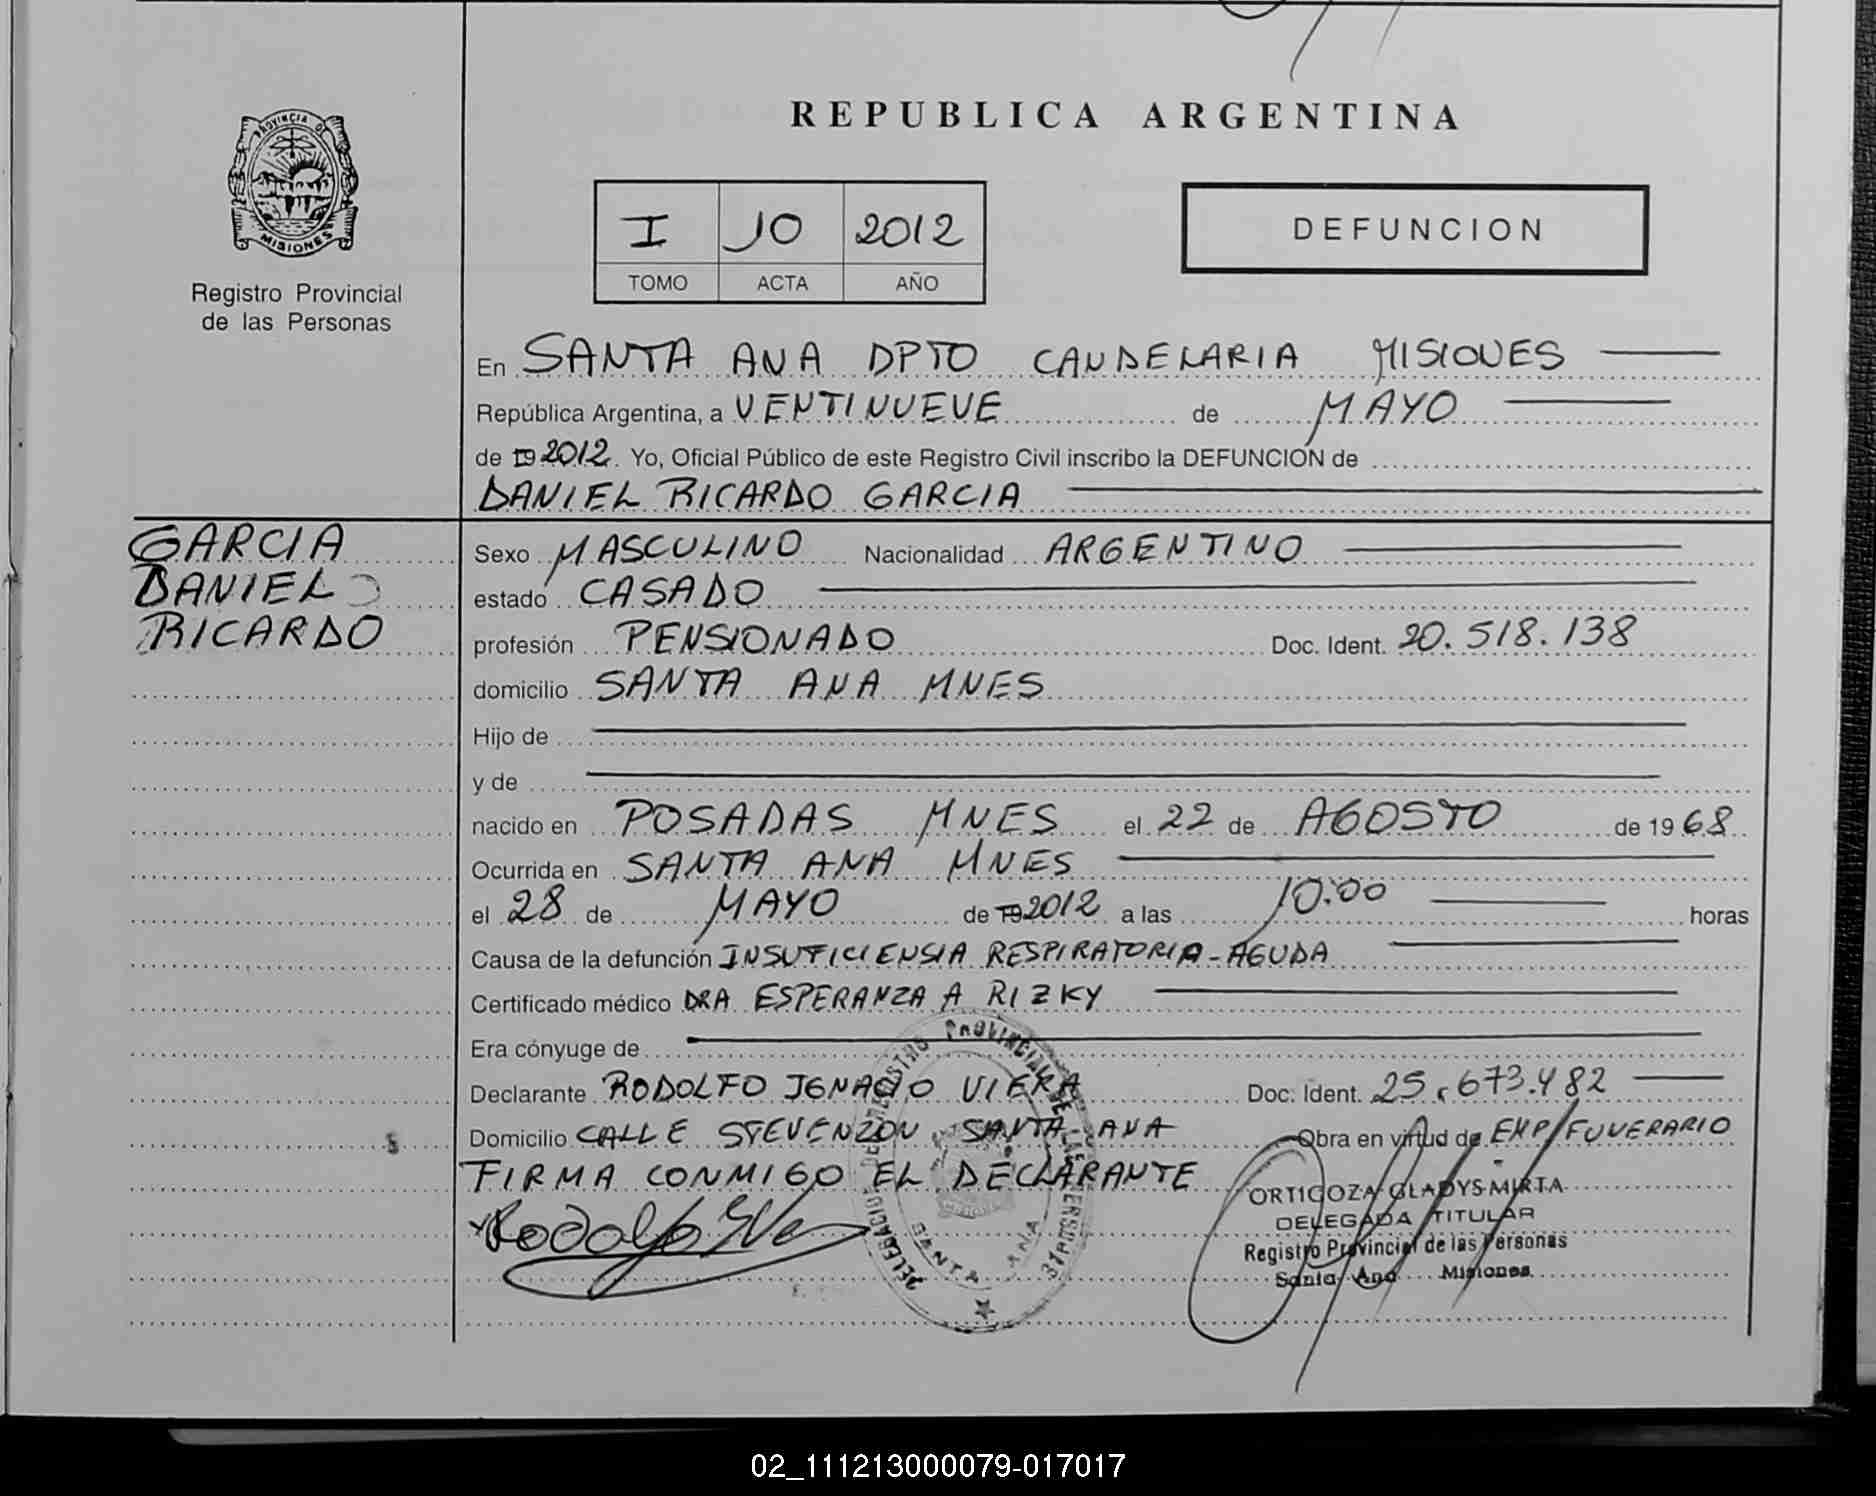 REPUBLICA ARGENTINA
PROVINCIA DE
MISIONES
Registro Provincial
de las Personas
I JO 2012
TOMO ACTA AÑO
DEFUNCION
En SANTA ANA DPTO CANDELARIA MISIONES
República Argentina, a VENTINUEVE de MAYO
de 19 2012. Yo, Oficial Público de este Registro Civil inscribo la DEFUNCION de
DANIEL RICARDO GARCIA
GARCIA
DANIEL
RICARDO
Sexo MASCULINO Nacionalidad ARGENTINO
estado CASADO
profesión PENSIONADO Doc. Ident. 20.518.138
domicilio SANTA ANA MNES
Hijo de
y de
nacido en POSADAS MNES el 22 de AGOSTO de 1968
Ocurrida en SANTA ANA MNES
el 28 de MAYO de 19 2012 a las 10:00 horas
Causa de la defunción INSUFICIENSIA RESPIRATORIA - AGUDA
Certificado médico DRA ESPERANZA A RIZKY
Era cónyuge de
Declarante RODOLFO IGNACIO VIERA Doc. Ident. 25.673.482
Domicilio CALLE STEVENZON SANTA ANA Obra en virtud de EMP/FUNERARIO
FIRMA CONMIGO EL DECLARANTE
ORTIGOZA GLADYS MIRTA
DELEGADA TITULAR
Registro Provincial de las Personas
Santa Ana Misiones
SANTA ANA
02_111213000079-017017